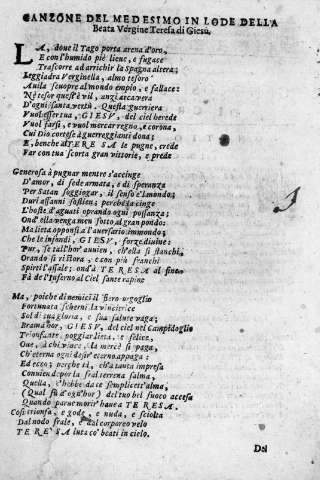 CANZONE DEL MEDESIMO IN LODE DELLA
Beata Vergine Teresa di Giesu.
LA, doue il Tago porta arena d'oro,
E con l'humido piè lieue, e fugace
Trascorre ad arrichir la Spagna altera;
Leggiadra Verginella, almo tesoro
A uila scuopre al mondo empio, e fallace:
Nè tesor quest'è vil, anzi arca vera
D'ogni santa vertù. Questa guerriera
Vuol esser tua, GIESV, del ciel herede
Vuol farsi, e vuol mercar regno, e corona,
Cui Dio cortese à guerreggianti dona;
E, benche à TERESA le pugne, crede
Far con tua scorta gran vittorie, e prede
Generosa à pugnar mentre s'accinge
D'amor, di fede armata, e di speranza
Per Satan soggiogar, il senso e'l mondo;
Duri assanni sostien; perche la cinge
L'hoste d'aguati oprando ogni possanza;
Ond'ella venga men sotto al gran pondo:
Ma lieta opponsi à l'auersario immondo;
Che le infondi, GIESV, forze diuine:
Pur, se talhor auuien, ch'ella si stanchi,
Orando si ristora, e con più franchi
Spirti l'assale; ond'à TERESA al fine
Fà de l'Inferno al Ciel sante rapine
Ma, poiche di nemici il fiero orgoglio
Fortunata scherni la vincitrice
Sol di tua gloria, e sua salute vaga;
Brama hor, GIESV, del ciel nel Campidoglio
Trionfante poggiar lieta, e felice,
Oue, à chi vince, la mercè si paga,
Ch'eterna ogni desir eterna appaga:
Ed ecco; perche tì, ch'à tanta impresa
Conuien deporsi la fral terrena salma,
Quella, c'hebbe da te semplicett'alma,
(Qual sù d'ogn'hor) del tuo bel fuoco accesa
Quando pur ne morir hauea TERESA.
Così trionfa, e gode, e nuda, e sciolta
Dal nodo frale, e dal corporeo velo
TERESA luta co' beati in cielo.
Del